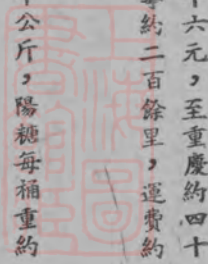 十六元，至重慶約四十
約二百餘里，運費約
公斤，陽糖每桶重約